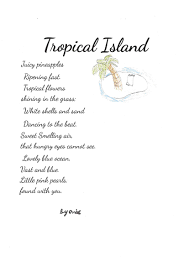 Tropical Island
Juicy pineapples
Ripening fast.
Tropical flowers
shining in the grass.
White shells and sand
Dancing to the beat.
Sweet Smelling air,
that hungry eyes cannot see.
Lovely blue ocean,
Vast and blue.
Little pink pearls,
found with you.
By